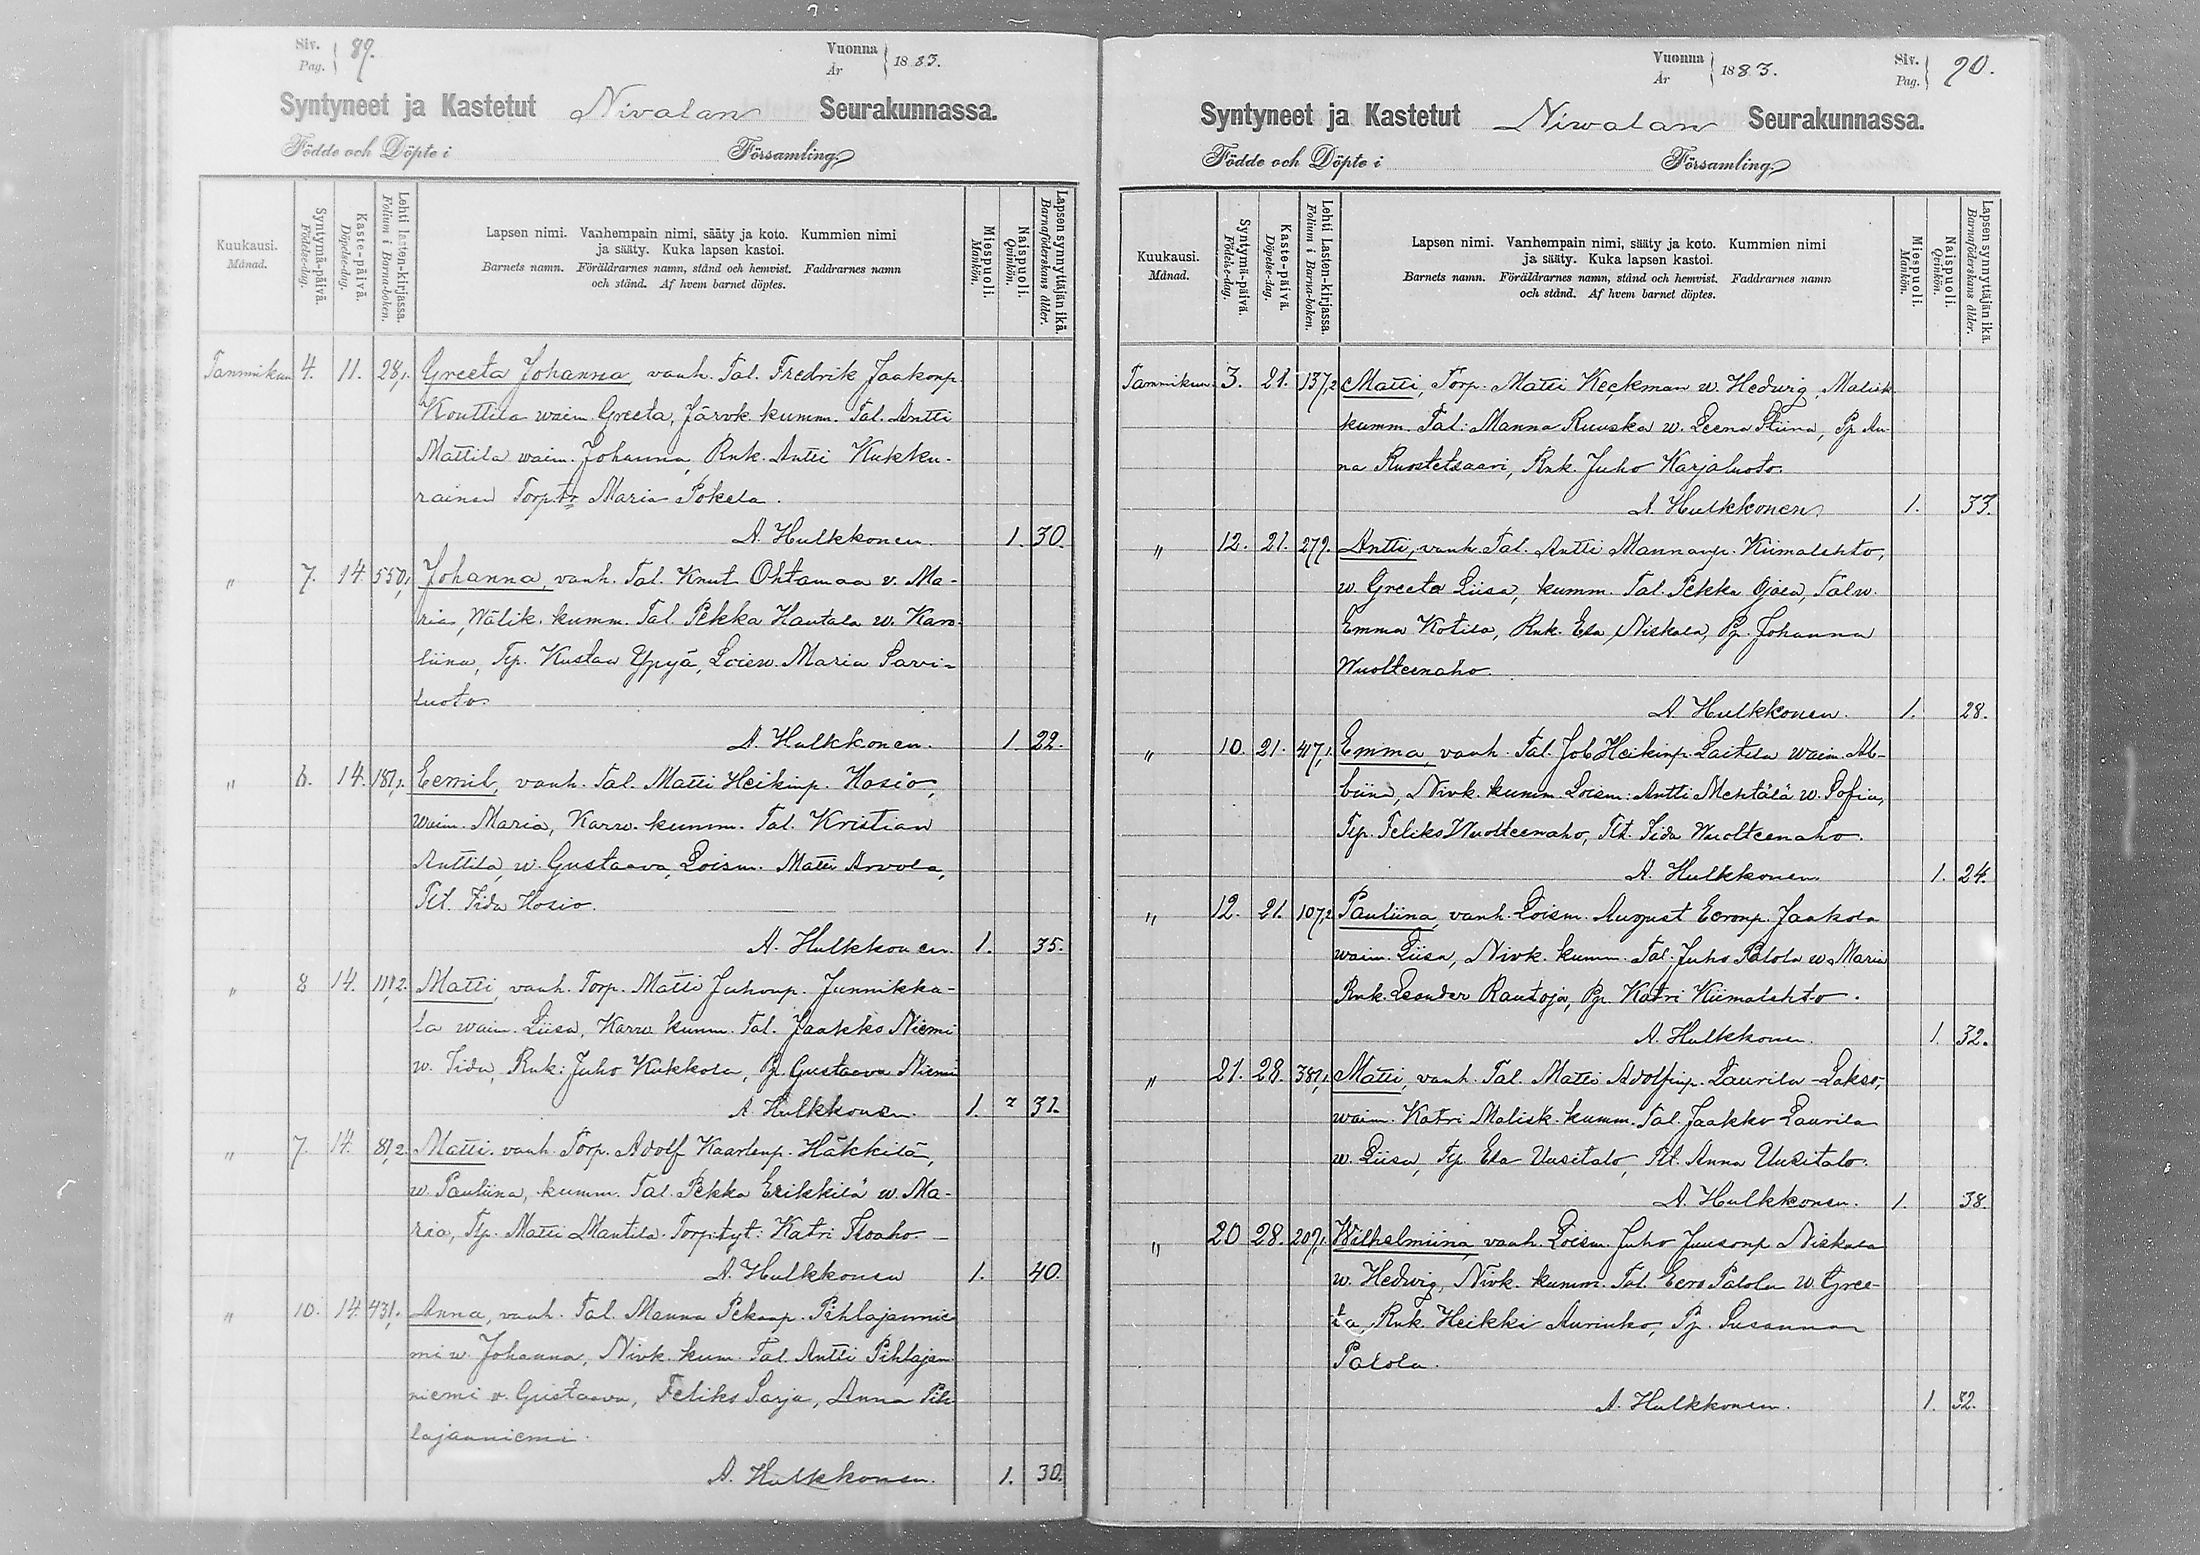 Siv. 89.
Pag.
Vuonna 1883.
År
Syntyneet ja Kastetut Nivalan Seurakunnassa.
Födde och Döpte i Församling
Kuukausi.
Månad.
Syntymä-päivä.
Födelse-dag.
Kaste-päivä.
Döpelse-dag.
Lehti lasten-kirjassa.
Folium i Barna-boken.
Lapsen nimi. Vanhempain nimi, sääty ja koto. Kummien nimi
ja sääty. Kuka lapsen kastoi.
Barnets namn. Föräldrarnes namn, stånd och hemvist. Faddrarnes namn
och stånd. Af hvem barnet döptes.
Miespuoli.
Mankön.
Naispuoli.
Qvinkön.
Lapsen synnyttäjän ikä.
Barnaföderskans ålder.
Tammikun 4. 11. 28,1. Greeta Johanna, vanh. Tal. Fredrik Jaakonp.
Kouttila waim Greeta, Järvk. kumm. Tal. Antti
Mattila waim. Johanna, Rnk. Antti Kukku-
rainen Torptr Maria Pokela.
A. Hulkkonen. 1. 30.
" 7. 14. 550,1 Johanna, vanh. Tal. Knut Ohtamaa v. Ma-
ria, Wälik. kumm. Tal. Pekka Hautala w. Karo-
liina, Tp. Kustaa Yppyä, Loisw. Maria Savi-
luoto.
A. Hulkkonen. 1 22.
" 6. 14. 187,1. Eemil, vanh. Tal. Matti Heikinp. Hosio,
waim. Maria, Karw. kumm. Tal. Kristian
Anttila, w. Gustaava, Loism. Matti Arvola,
Tlt. Iida Hosio.
A. Hulkkonen. 1. 35.
" 8 14. 111,2. Matti, vanh. Torp. Matti Juhonp. Junnikka-
la waim. Liisa, Karw kumm. Tal. Jaakko Niemi
w. Iida, Rnk: Juho Kukkola, Pp. Gustaava Niemi
A Hulkkonen. 1. 31.
" 7. 14. 81,2. Matti. vanh. Torp. Adolf Kaarlenp. Häkkilä,
w. Pauliina, kumm. Tal. Pekka Erikkilä w. Ma-
ria, Tp. Matti Mantila. Torp.tyt: Katri Isoaho
A. Hulkkonen 1. 40.
" 10. 14. 431,1. Anna, vanh. Tal. Manna Pekanp. Pihlajannie
mi w. Johanna, Nivk. kum. Tal. Antti Pihlajan
niemi v. Gustaava, Feliks Sarja, Anna Pih
lajanniemi.
A. Hulkkonen. 1. 30.
Vuonna 1883.
År
Siv. 90.
Pag.
Syntyneet ja Kastetut Niwalan Seurakunnassa.
Födde och Döpte i Församling
Kuukausi.
Månad.
Syntymä-päivä.
Födelse-dag.
Kaste-päivä.
Döpelse-dag.
Lehti Lasten-kirjassa.
Folium i Barna-boken.
Lapsen nimi. Vanhempain nimi, sääty ja koto. Kummien nimi
ja sääty. Kuka lapsen kastoi.
Barnets namn. Föräldrarnes namn, stånd och hemvist. Faddrarnes namn
och stånd. Af hvem barnet döptes.
Miespuoli.
Mankön.
Naispuoli.
Qvinkön.
Lapsen synnyttäjän ikä.
Barnaföderskans ålder.
Tammikun. 3. 21. 137,2 Matti, Torp. Matti Keckman w. Hedwig, Malisk
kumm. Tal: Manna Ruuska w. Leena Stiina, Pp An-
na Ruostetsaari, Rnk. Juho Karjaluoto.
A. Hulkkonen. 1. 33.
" 12. 21. 279. Antti, vanh Tal. Antti Mannanp. Kiimalehto,
w. Greeta Liisa, kumm. Tal. Pekka Ojala, Talw.
Emma Kotila, Rnk. Esa Niskala, Pp. Johanna
Wuolteenaho.
A. Hulkkonen. 1. 28.
" 10. 21. 417,1. Emma, vanh. Tal. Job Heikinp. Laitila waim. Al-
biina, Nivk. kumm. Loism: Antti Mehtälä w. Sofia,
Tp. Feliks Wuolteenaho, Tlt. Iida Wuolteenaho.
A. Hulkkonen 1. 24.
" 12. 21. 107,2 Pauliina, vanh. Loism. August Eeronp. Jaakola
waim. Liisa, Nivk. kumm. Tal. Juho Palola w. Maria
Rnk. Leander Rautoja, Pp. Katri Kiimalehto.
A. Hulkkonen. 1. 32.
" 21. 28. 381,1. Matti, vanh. Tal. Matti Adolfinp. Laurila-Lakso,
waim. Katri Malisk. kumm. Tal. Jaakko Laurila
w. Liisa, Tp. Esa Uusitalo, Tlt. Anna Uusitalo.
A. Hulkkonen. 1. 38.
" 20 28. 207,1. Wilhelmiina, vanh. Loism. Juho Juusonp Niskala
w. Hedwig, Nivk. kumm. Tal. Eero Palola w. Gree-
ta, Rnk. Heikki Aurinko, Pp. Susanna
Palola.
A. Hulkkonen. 1. 32.